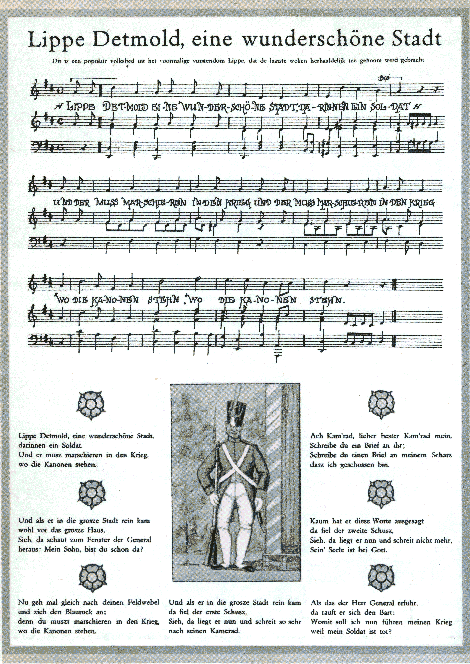 Lippe Detmold, eine wunderschöne Stadt
Dit is een populair volkslied uit het voormalige vorstendom Lippe, dat de laatste weken herhaaldelijk ten gehoore werd gebracht
LIPPE DET-MOLD EI-NE WUN-DER-SCHÖ-NE STADT, DA-RINNEN EIN SOL-DAT
UND DER MUSS MAR-SCHIE-REN IN DEN KRIEG, UND DER MUSS MAR-SCHIE-REN IN DEN KRIEG
WO DIE KA-NO-NEN STEHN, WO DIE KA-NO-NEN STEHN.
Lippe Detmold, eine wunderschöne Stadt,
darinnen ein Soldat.
Und er muss marschieren in den Krieg,
wo die Kanonen stehen.
Und als er in die grosze Stadt rein kam
wohl vor das grosze Haus,
Sieh, da schaut zum Fenster der General
heraus: Mein Sohn, bist du schon da?
Nu geh mal gleich nach deinen Feldwebel
und zieh den Blaurock an;
denn du muszt marschieren in den Krieg,
wo die Kanonen stehen.
Und als er in die grosze Stadt rein kam
da fiel der erste Schusz,
Sieh, da liegt er nun und schreit so sehr
nach seinen Kamerad.
Ach Kam'rad, lieber bester Kam'rad mein,
Schreibe du ein Brief an ihr;
Schreibe du einen Brief an meinem Schatz
dasz ich geschossen bin.
Kaum hat er diese Worte ausgesagt
da fiel der zweite Schusz,
Sieh, da liegt er nun und schreit nicht mehr,
Sein' Seele ist bei Gott.
Als das der Herr General erfuhr,
da rauft er sich den Bart:
Womit soll ich nun führen meinen Krieg
weil mein Soldat ist tot?